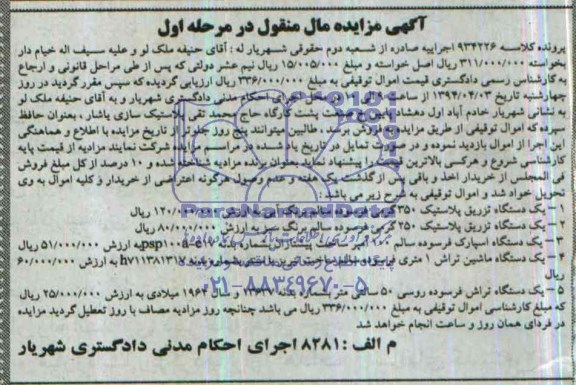 آگهی مزایده مال منقول در مرحله اول
پرونده کلاسه ۹۳۴۲۲۶ اجراییه صادره از شعبه دوم حقوقی شهریار له : آقای حنیفه ملک لو و علیه سیف اله خیام دار
بخواسته ۳۱۱/۰۰۰/۰۰۰ ریال اصل خواسته و مبلغ ۱۵/۰۰۵/۰۰۰ ریال نیم عشر دولتی که پس از طی مراحل قانونی و ارجاع
به کارشناس رسمی دادگستری قیمت اموال توقیفی به مبلغ ۳۳۶/۰۰۰/۰۰۰ ریال ارزیابی گردیده که سپس مقرر گردید در روز
چهارشنبه تاریخ ۱۳۹۴/۰۴/۰۳ از ساعت اجرای احکام مدنی دادگستری شهریار و به آقای حنیفه ملک لو
به نشانی شهریار خادم آباد اول دهشاد پشت کارگاه حاج تقی پلاستیک سازی یاشار ، بعنوان حافظ
سپرده که اموال توقیفی از طریق مزایده به فروش برسد ، طالبین میتوانند پنج روز جلوتر از تاریخ مزایده با اطلاع و هماهنگی
این اجرا از اموال بازدید نموده و در صورت تمایل در تاریخ یاد شده در مراسم مزایده شرکت نمایند مزایده از قیمت پایه
کارشناسی شروع و هرکسی بالاترین قیمت را پیشنهاد نماید بعنوان برنده مزایده شناخته شده و ۱۰ درصد از کل مبلغ فروش
فی المجلس از خریدار اخذ و باقی پس از گذشت یک هفته و عدم وصول هرگونه اعتراضی از خریدار و کلیه اموال به وی
تحویل خواد شد و اموال توقیفی به شرح زیر می باشد :
۱ – یک دستگاه تزریق پلاستیک ۳۵۰ گرمی فرسوده سالم برنگ آبی به ارزش ۱۲۰/۰۰۰/۰۰۰ ریال
۲ – یک دستگاه تزریق پلاستیک ۲۵۰ گرمی فرسوده سالم برنگ سبز به ارزش ۸۰/۰۰۰/۰۰۰ ریال
۳ – یک دستگاه اسپارک فرسوده سالم به ارزش ۵۱/۰۰۰/۰۰۰ ریال
۴ – یک دستگاه ماشین تراش ۱ متری فرسوده سالم h۷۱۱۳۸۱۳۱۷ به ارزش ۶۰/۰۰۰/۰۰۰
ریال
۵- یک دستگاه تراش فرسوده روسی ۵۰ سانتی متر بشماره بدنه سال ۱۹۶۴ میلادی به ارزش ۲۵/۰۰۰/۰۰۰ ریال
که مبلغ کارشناسی اموال توقیفی به مبلغ ۳۳۶/۰۰۰/۰۰۰ ریال می باشد چنانچه روز مزایده مصاف با روز تعطیل گردید مزایده
در فردای همان روز و ساعت انجام خواهد شد
م الف : ۸۲۸۱ اجرای احکام مدنی دادگستری شهریار
ParsNamadData
۰۲۱-۸۸۳۴۹۶۷۰-۵